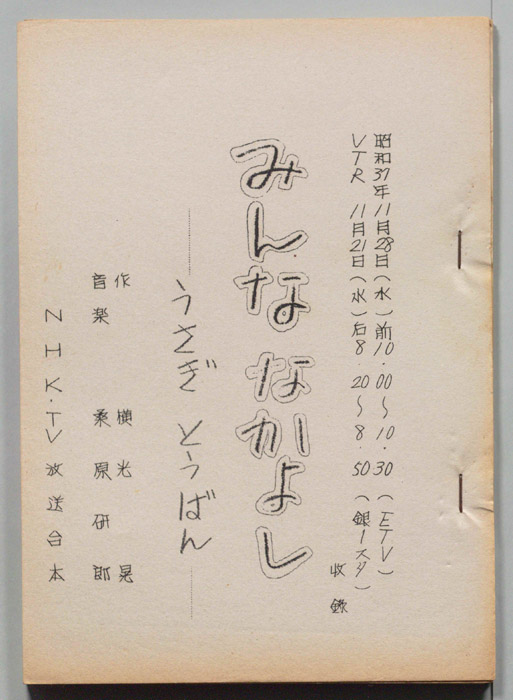 昭和37年11月28日（水）前10.00〜10.30（ETV）
VTR 11月21日（水）后8.20〜8.50（銀一スタ）
収録
みんな なかよし
うさぎ とうばん
作 横光 晃
音楽 桑原研郎
NHK・TV放送台本